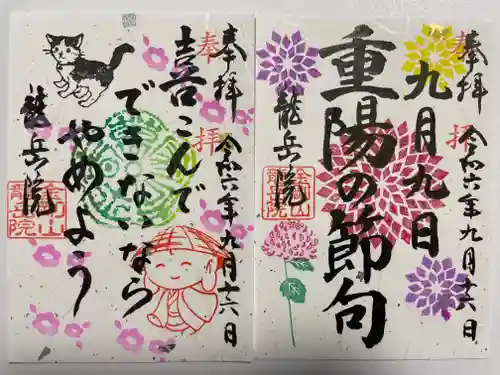 奉拝
九月九日
重陽の節句
龍岳院
令和六年九月十六日
奉拝
喜こんで
できないなら
やめよう
龍岳院
令和六年九月十六日
奉拝
奉拝